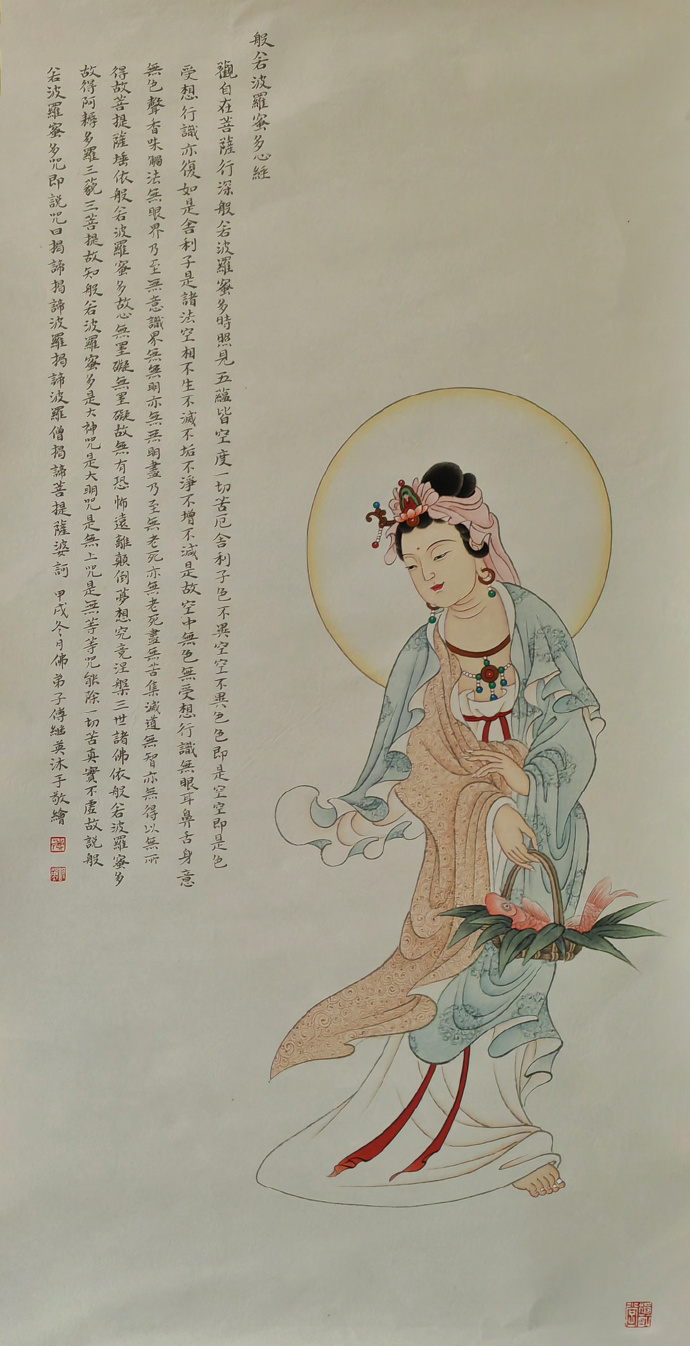 般若波羅蜜多心經
觀自在菩薩行深般若波羅蜜多時照見五蘊皆空度一切苦厄舍利子色不異空空不異色色即是空空即是色
受想行識亦復如是舍利子是諸法空相不生不滅不垢不淨不增不減是故空中無色無受想行識無眼耳鼻舌身意
無色聲香味觸法無眼界乃至無意識界無無明亦無無明盡乃至無老死亦無老死盡無苦集滅道無智亦無得以無所
得故菩提薩埵依般若波羅蜜多故心無罣礙無罣礙故無有恐怖遠離顛倒夢想究竟涅槃三世諸佛依般若波羅蜜多
故得阿耨多羅三藐三菩提故知般若波羅蜜多是大神咒是大明咒是無上咒是無等等咒能除一切苦真實不虛故說般
若波羅蜜多咒即說咒曰揭諦揭諦波羅揭諦波羅僧揭諦菩提薩婆訶 甲戌冬月佛弟子傅繼英沐手敬繪